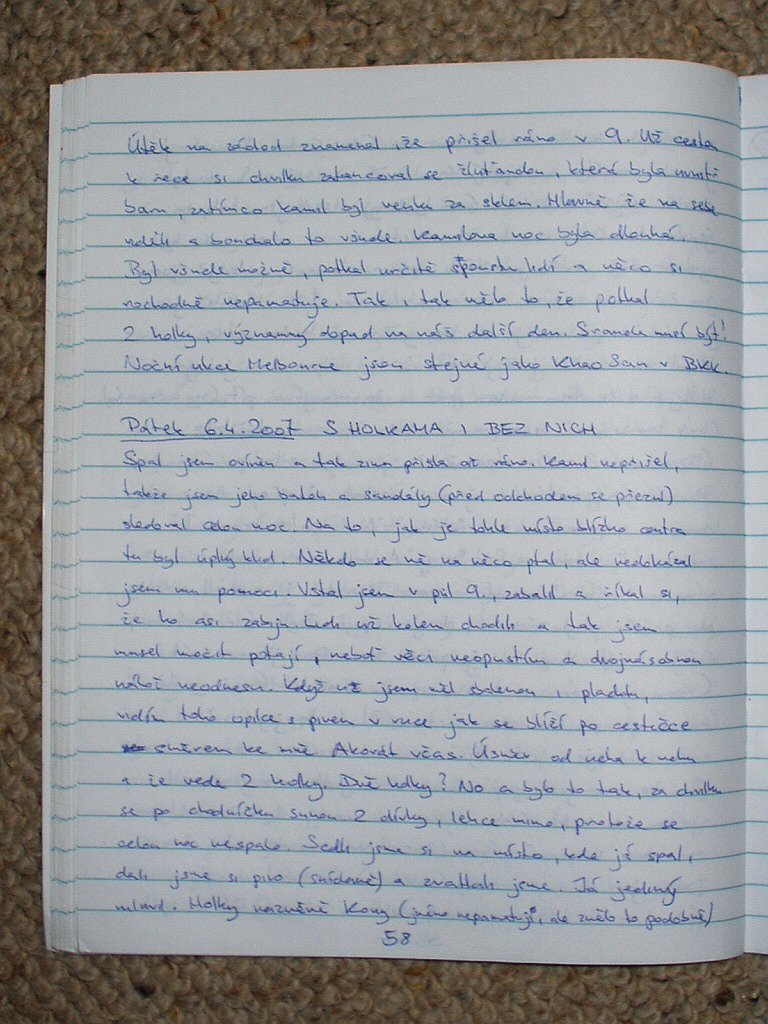 Útěk na záchod znamenal, že přišel ráno v 9. Už cestou
k řece si chvilku zatancoval se žluťandou, která byla uvnitř
baru, zatímco Kamil byl venku za sklem. Hlavně že na sebe
viděli a bouchalo to všude. Kamilova noc byla dlouhá.
Byl všude možně, potkal určitě spoustu lidí a něco si
rozhodně nepamatuje. Tak i tak mělo to, že potkal
2 holky, významný dopad na náš další den. Sranda musí být!
Noční ulice Melbourne jsou stejné jako Khao San v BKK.
Pátek 6.4.2007 S HOLKAMA I BEZ NICH
Spal jsem ovíněn a tak zima přišla až ráno. Kamil nepřišel,
takže jsem jeho batoh a sandály (před odchodem se přezul)
sledoval celou noc. Na to, jak je tohle místo blízko centra
tu byl úplný klid. Někdo se mě na něco ptal, ale nedokázal
jsem mu pomoci. Vstal jsem v půl 9., zabalil a říkal si,
že ho asi zabiju. Lidi už kolem chodili a tak jsem
musel močit potají, neboť věci neopustím a dvojnásobnou
nálož neodnesu. Když už jsem měl sbalenou i plachtu,
vidím toho opilce s pivem v ruce jak se blíží po cestičce
směrem ke mně. Akorát včas. Úsměv od ucha k uchu
a že vede 2 holky. Dvě holky? No a bylo to tak, za chvilku
se po chodníčku sunou 2 dívky, lehce mimo, protože se
celou noc nespalo. Sedli jsme si na místo, kde já spal,
dali jsme si pivo (snídaně) a zvatlali jsme. Já jediný
mluvil. Holky zazněně Kony (jméno nepamatuji, ale znělo to podobně)
58